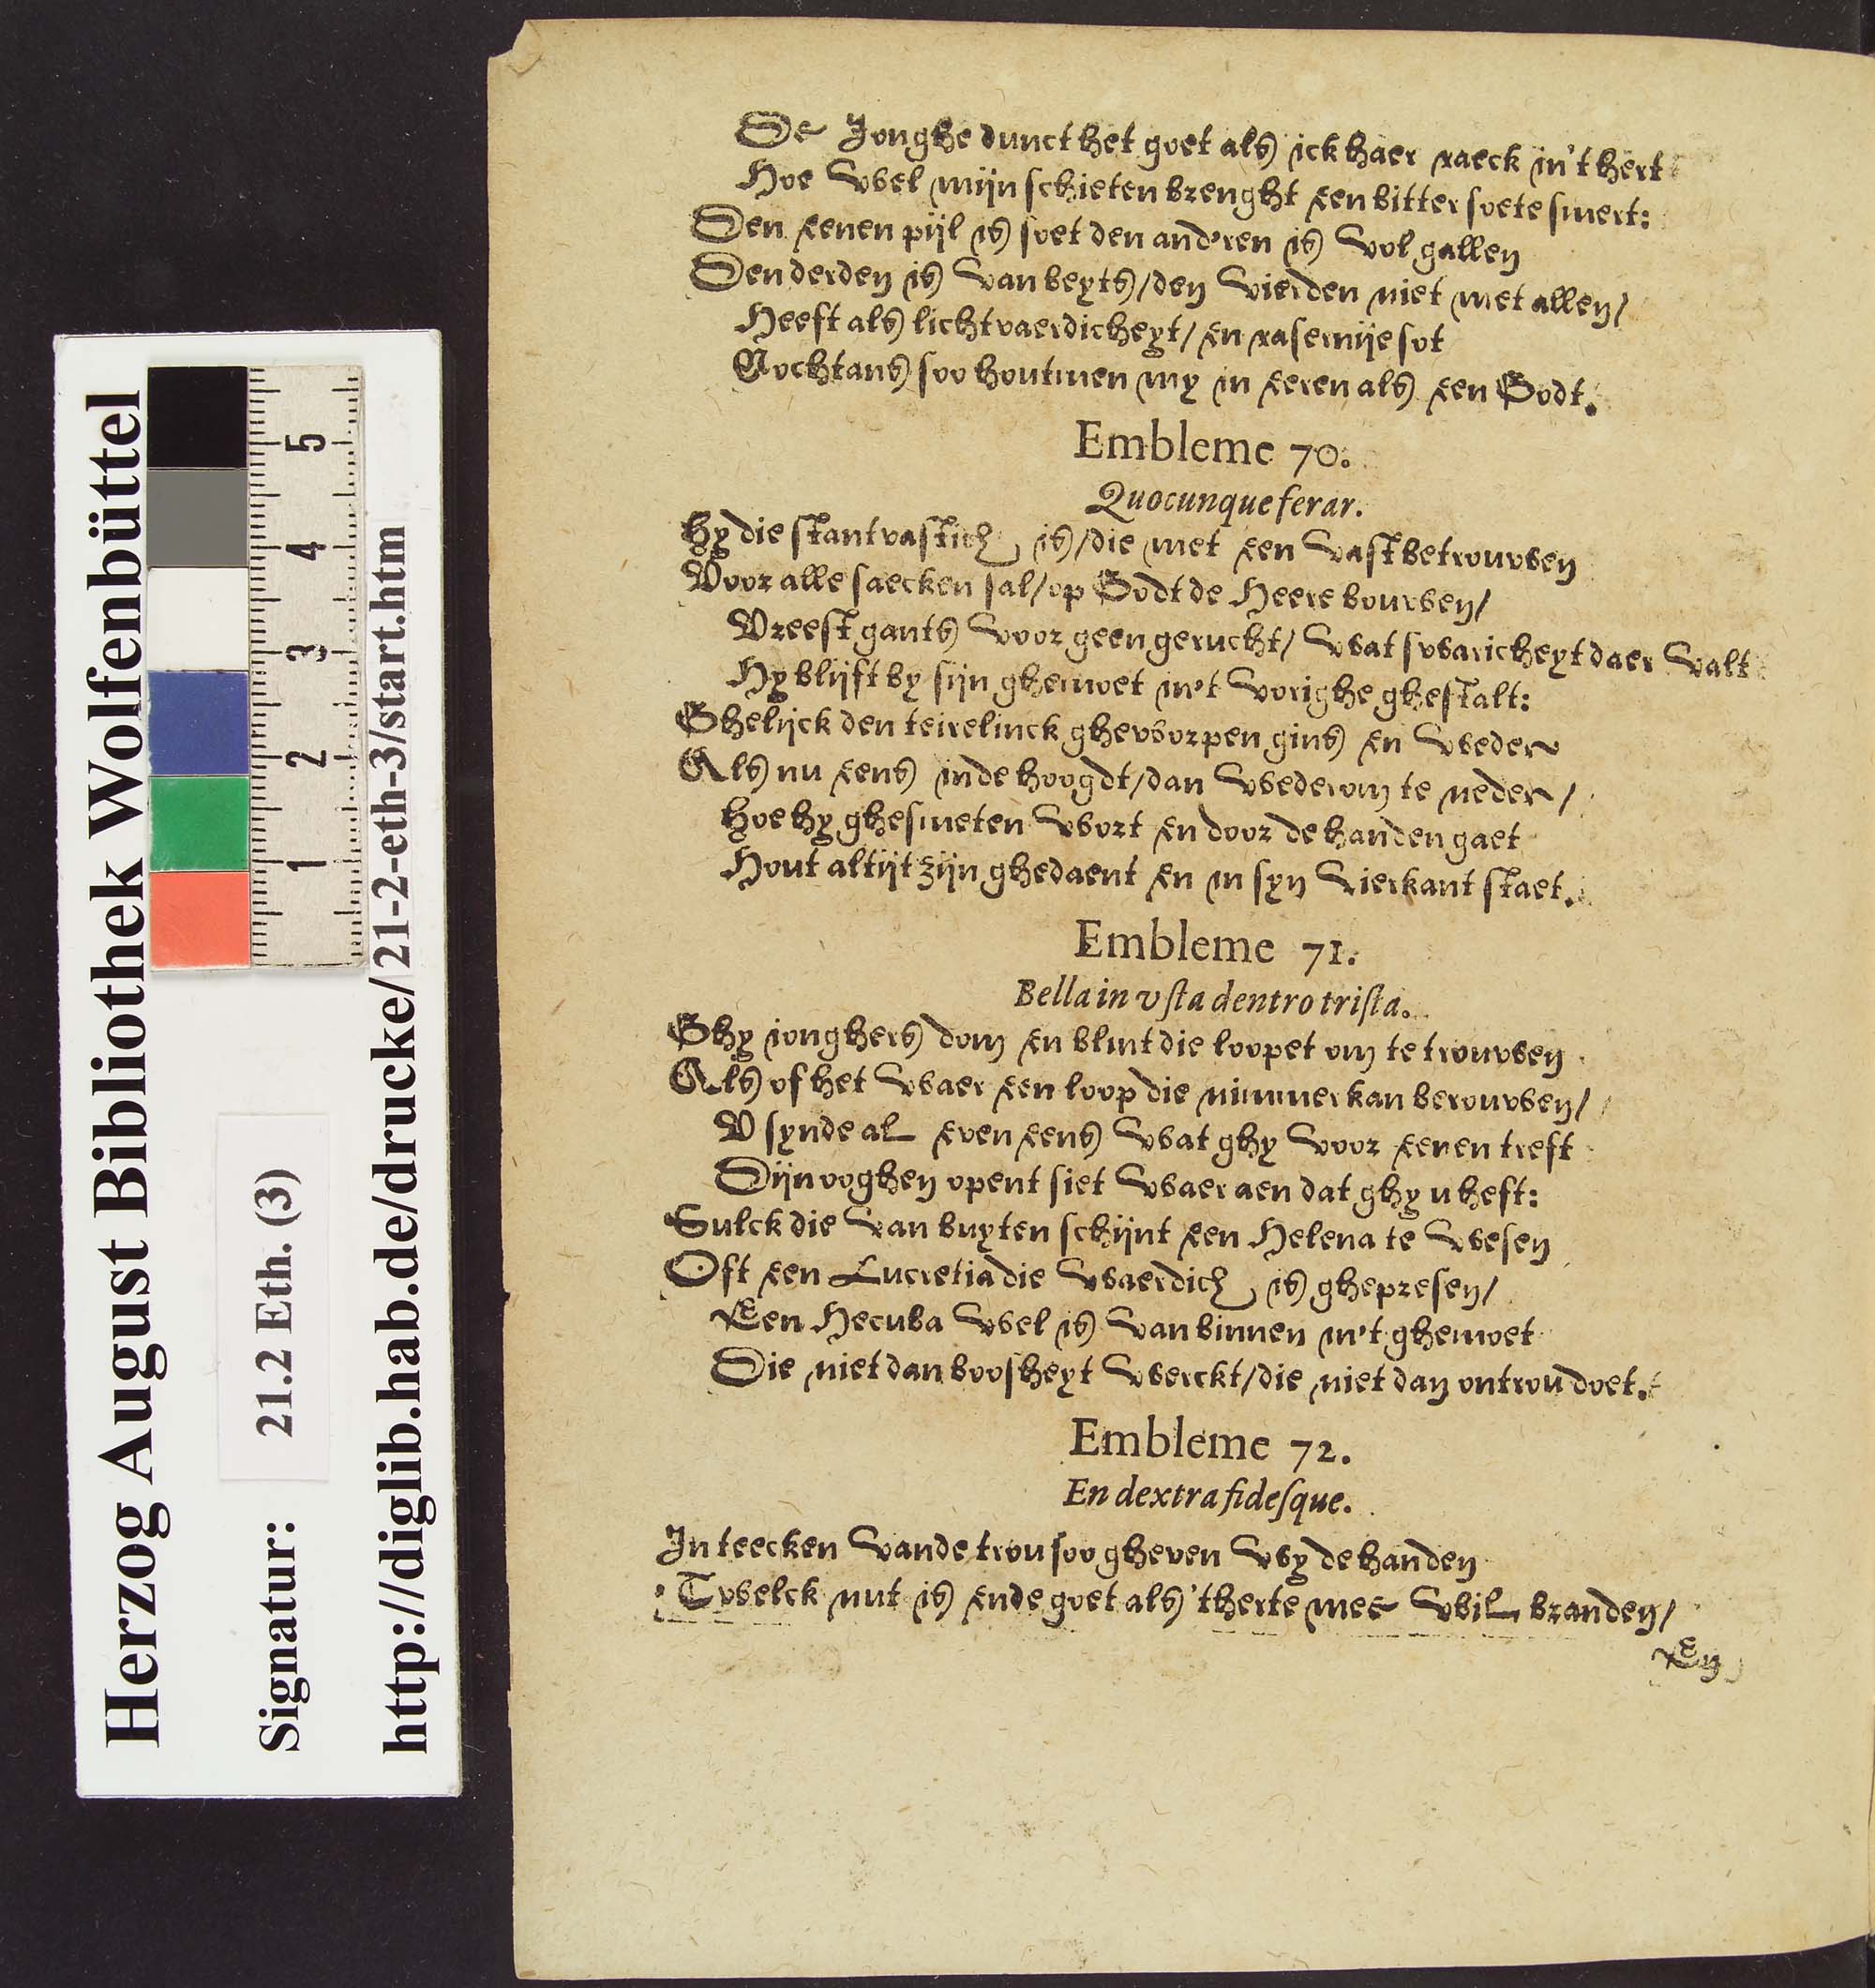 De Jonghe dunct het goet als ick haer raeck in't hert
Hoe wel mijn schieten brenght een bitter soete smert:
Den eenen pijl is soet den and'ren is vol gallen
Den derden is van beyts/den vierden niet met allen/
Heeft als lichtvaerdicheyt/ en rasernije sot
Nochtans soo houtmen my in eeren als een Godt.
Embleme 70.
Quocunque ferar.
Hy die stantvastich is/die met een vast betrouwen
Voor alle saecken sal/op Godt de Heere bouwen/
Vreest gants voor geen gerucht/ wat swaricheyt daer valt
Hy blijft by sijn ghemoet in't vorighe ghestalt:
Ghelijck den teirelinck gheworpen gins en weder
Als nu eens inde hoogdt/dan wederom te neder/
Hoe hy ghesmeten wort en door de handen gaet
Hout altijt zijn ghedaent en in syn vierkant staet.
Embleme 71.
Bella in vſta dentro triſta.
Ghy ionghers dom en blint die loopet om te trouwen
Als of het waer een loop die nimmer kan berouwen/
V synde al even eens wat ghy voor eenen treft
Dijn ooghen opent siet waer aen dat ghy u heft:
Sulck die van buyten schijnt een Helena te wesen
Oft een Lucretia die waerdich is ghepresen/
Een Hecuba wel is van binnen in't ghemoet
Die niet dan boosheyt werckt/die niet dan ontrou doet.
Embleme 72.
En dextra fideſque.
In teecken vande trou soo gheven wy de handen
Twelck nut is ende goet als 'therte mee wil branden/
En
Herzog August Bibliothek Wolfenbüttel
Signatur: 21.2 Eth. (3)
http://diglib.hab.de/drucke/21-2-eth-3/start.htm
1 2 3 4 5